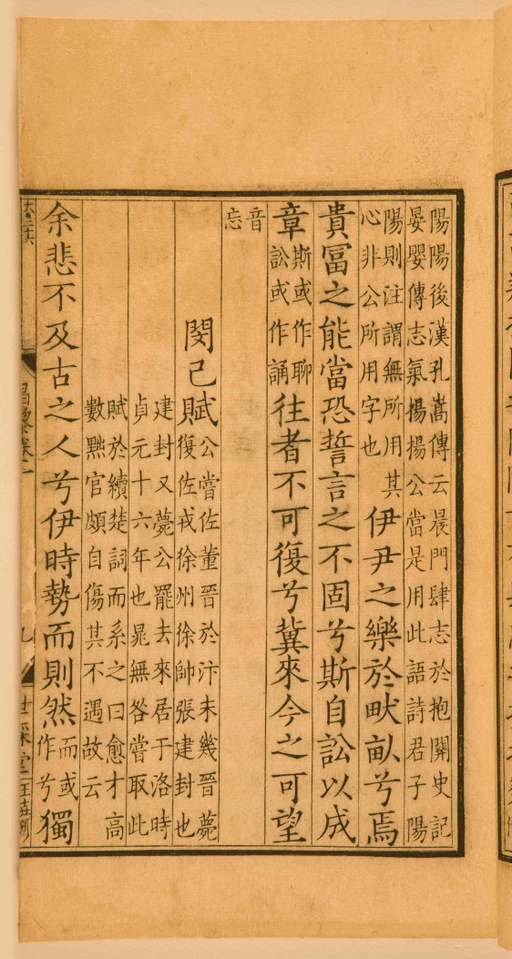 陽陽後漢孔嵩傳云晨門肆志於抱關史記
晏嬰傳志氣揚揚公當是用此語詩君子陽
陽則注謂無所用其
心非公所用字也
伊尹之樂於畎畝兮焉
貴冨之能當恐誓言之不固兮斯自訟以成
章
斯或作聊
訟或作誦
往者不可復兮冀來今之可望
音
忘
閔己賦
公嘗佐董晉於汴未幾晉薨
復佐戎徐州徐帥張建封也
建封又薨公罷去來居于洛時
貞元十六年也晁無咎嘗取此
賦於續楚詞而系之曰愈才高
數黜官頗自傷其不遇故云
余悲不及古之人兮伊時勢而則然
而或
作兮
獨
昌黎卷一
九
世綵堂